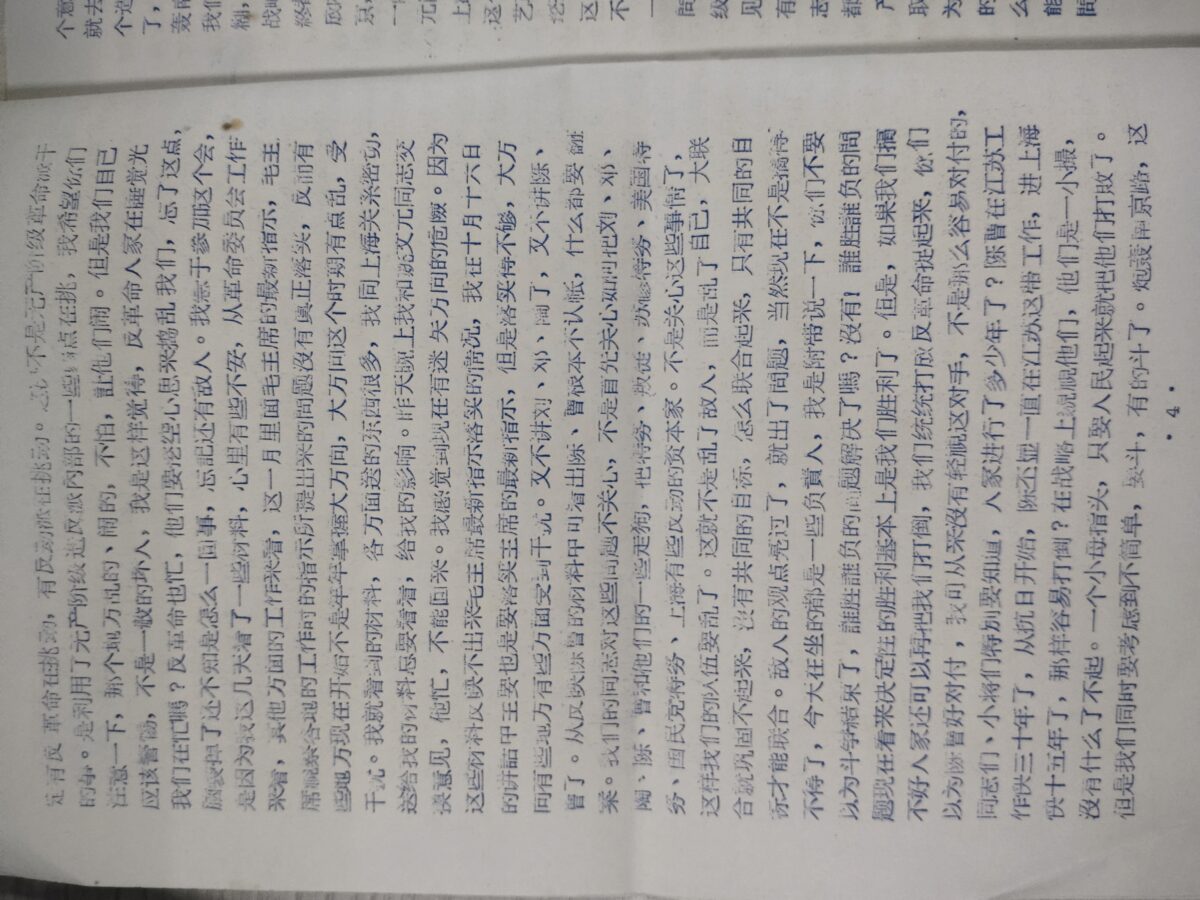 定有反革命在挑动，有反动派在挑动。这 不是无产阶级革命派干
的事。是利用了无产阶级造反派內部的一些 点在挑，我希望你们
注意一下，那个地方乱的、闹的，不怕，让他们闹。但是我们自己
应该警惕，不是一般的坏人，我是这样觉得，反革命人家在睡觉光
我们在忙嗎？反革命也忙，他们要挖空心思来捣乱我们，忘了这点，
脑袋掉了还不知是怎么一回事，忘記还有敌人。我急于参加这个会，
是因为我这几天看了一些材料，心里有些不安，从革命委员会工作
来看，其他方面的工作来看，这一月里面毛主席的最新指示，毛主
席視察各地的工作时的指示所提出来的問題沒有真正落实，反而有
些地方现在开始不是牢牢掌握大方向，大方向这个时期有点乱，受
干扰。我就看到的材料，各方面送的东西很多，我同上海关系密切，
送给我的材料总要看看，给我的影响。昨天晚上我和姚文元同志交
换意见，他忙，不能回来。我感觉到现在有迷失方向的危险。因为
这些材料反映不出来毛主席最新指示落实的情况，我在十月十六日
的讲話中主要也是要落实主席的最新指示，但是落实得不够，大方
向有些地方有些方面受到干扰。又不讲刘、邓、陶了，又不讲陈、
曹了。从反映陈曹的材料中可看出陈、曹根本不认帐，什么都要翻
案。我们的同志对这些問题不关心，不是首先关心如何把刘、邓、
陶、陈、曹和他们的一些走狗，把特务、叛徒、苏修特务、美国特
务、国民党特务、上海有些反动的资本家。不是关心这些事情了，
这样我们的队伍要乱了。这就不是乱了敌人，而是乱了自己，大联
合就巩固不起来，沒有共同的目标，怎么联合起来，只有共同的目
标才能联合。敌人的观点亮过了，就出了問題，当然现在不是搞得
不得了，今天在坐的都是一些负責人，我是附带说一下，你们不要
以为斗爭結束了，誰胜誰负的问题解决了嗎？沒有！誰胜誰负的問
题现在看来决定性的胜利基本上是我们胜利了。但是，如果我们搞
不好人家还可以再把我们打倒，我们统统打成反革命捉起来，你们
以为陈曹好对付，我可从来沒有轻視这对手，不是那么容易对付的，
同志们、小将们特別要知道，人家进行了多少年了？陈曹在江苏工
作快三十年了，从抗日开始，陈丕显一直在江苏这带工作，进上海
快十五年了，那样容易打倒？在战略上藐視他们，他们是一小撮，
沒有什么了不起。一个小母指头，只要人民起来就把他们打敗了。
但是我们同时要考虑到不简单，要斗，有的斗了。炮轰南京路，这
·4·